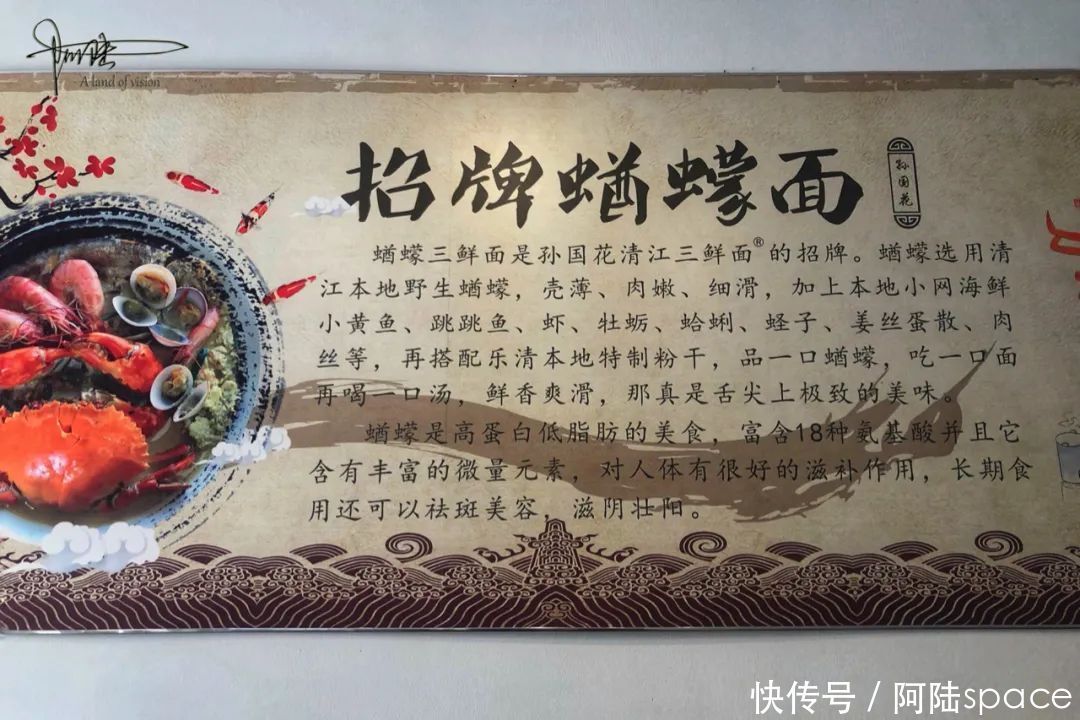 阿陆
A land of vision
招牌蝤蠓面
孙国花
蝤蠓三鲜面是孙国花清江三鲜面®的招牌。蝤蠓选用清
江本地野生蝤蠓，壳薄、肉嫩、细滑，加上本地小网海鲜
小黄鱼、跳跳鱼、虾、牡蛎、蛤蜊、蛏子、姜丝蛋散、肉
丝等，再搭配乐清本地特制粉干，品一口蝤蠓，吃一口面
再喝一口汤，鲜香爽滑，那真是舌尖上极致的美味。
蝤蠓是高蛋白低脂肪的美食，富含18种氨基酸并且它
含有丰富的微量元素，对人体有很好的滋补作用，长期食
用还可以祛斑美容，滋阴壮阳。
快传号 / 阿陆space